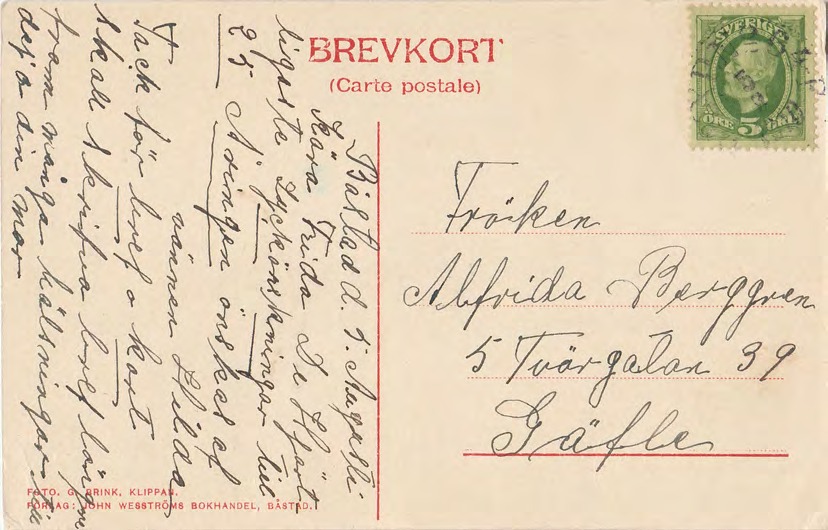 BREVKORT
(Carte postale)
SVERIGE
ÖRE 5
Båstad d. 5. Augusti
Kära Frida De Hjärt-
ligaste Lyckönskningar till
25 Åringen önskas af
vännen Hilda
Tack för bref o kort
skall skrifva bref längre
fram många hälsningar till
dej o din mor
Fröken
Alfrida Berggren
5 Tvärgatan 39
Gäfle
FOTO. G. BRINK, KLIPPAN.
FÖRLAG: JOHN WESSTRÖMS BOKHANDEL, BÅSTAD.